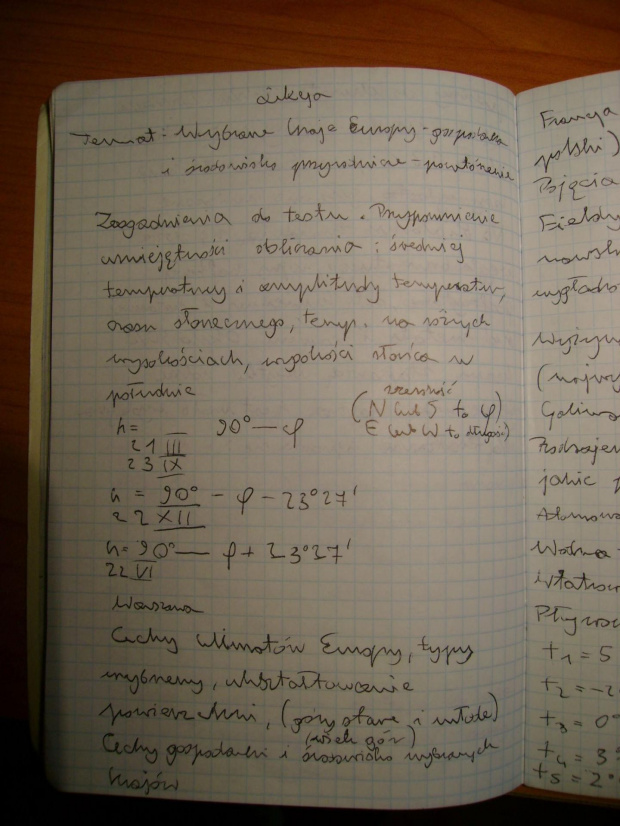 Lekcja
Temat: Wybrane kraje Europy - gospodarka
i środowisko przyrodnicze - powtórzenie
Zagadnienia do testu. Przypomnienie
umiejętności obliczania: średniej
temperatury i amplitudy temperatur,
czasu słonecznego, temp. na różnych
wysokościach, wysokości słońca w
południe
szerokość
(N lub S to φ)
E lub W to długość)
h= 90° — φ
21 III
23 IX
h = 90° - φ - 23°27'
22 XII
h= 90° — φ + 23°27'
22 VI
Warszawa
Cechy klimatów Europy, typy
wybrzeży, ukształtowanie
powierzchni, (góry stare i młode)
(wiek gór)
Cechy gospodarki i środowiska wybranych
krajów
Francja
polski)
Pojęcia
Fieldy
wyżyn
(najwy
jakie p
Atomowa
Wodna -
t1 = 5
t2 = -2
t3 = 0°
t4 = 3°
t5 = 2°